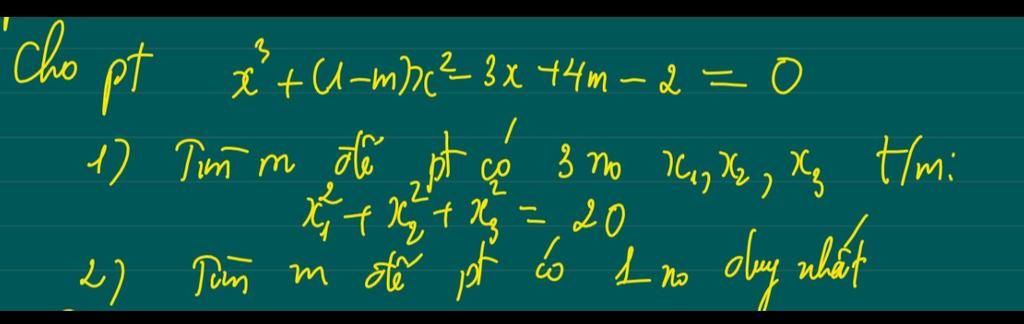 Cho pt x³ + (1-m)x² - 3x + 4m - 2 = 0
1) Tìm m để pt có 3 no x₁, x₂, x₃ t/m:
x₁² + x₂² + x₃² = 20
2) Tìm m để pt có 1 no duy nhất